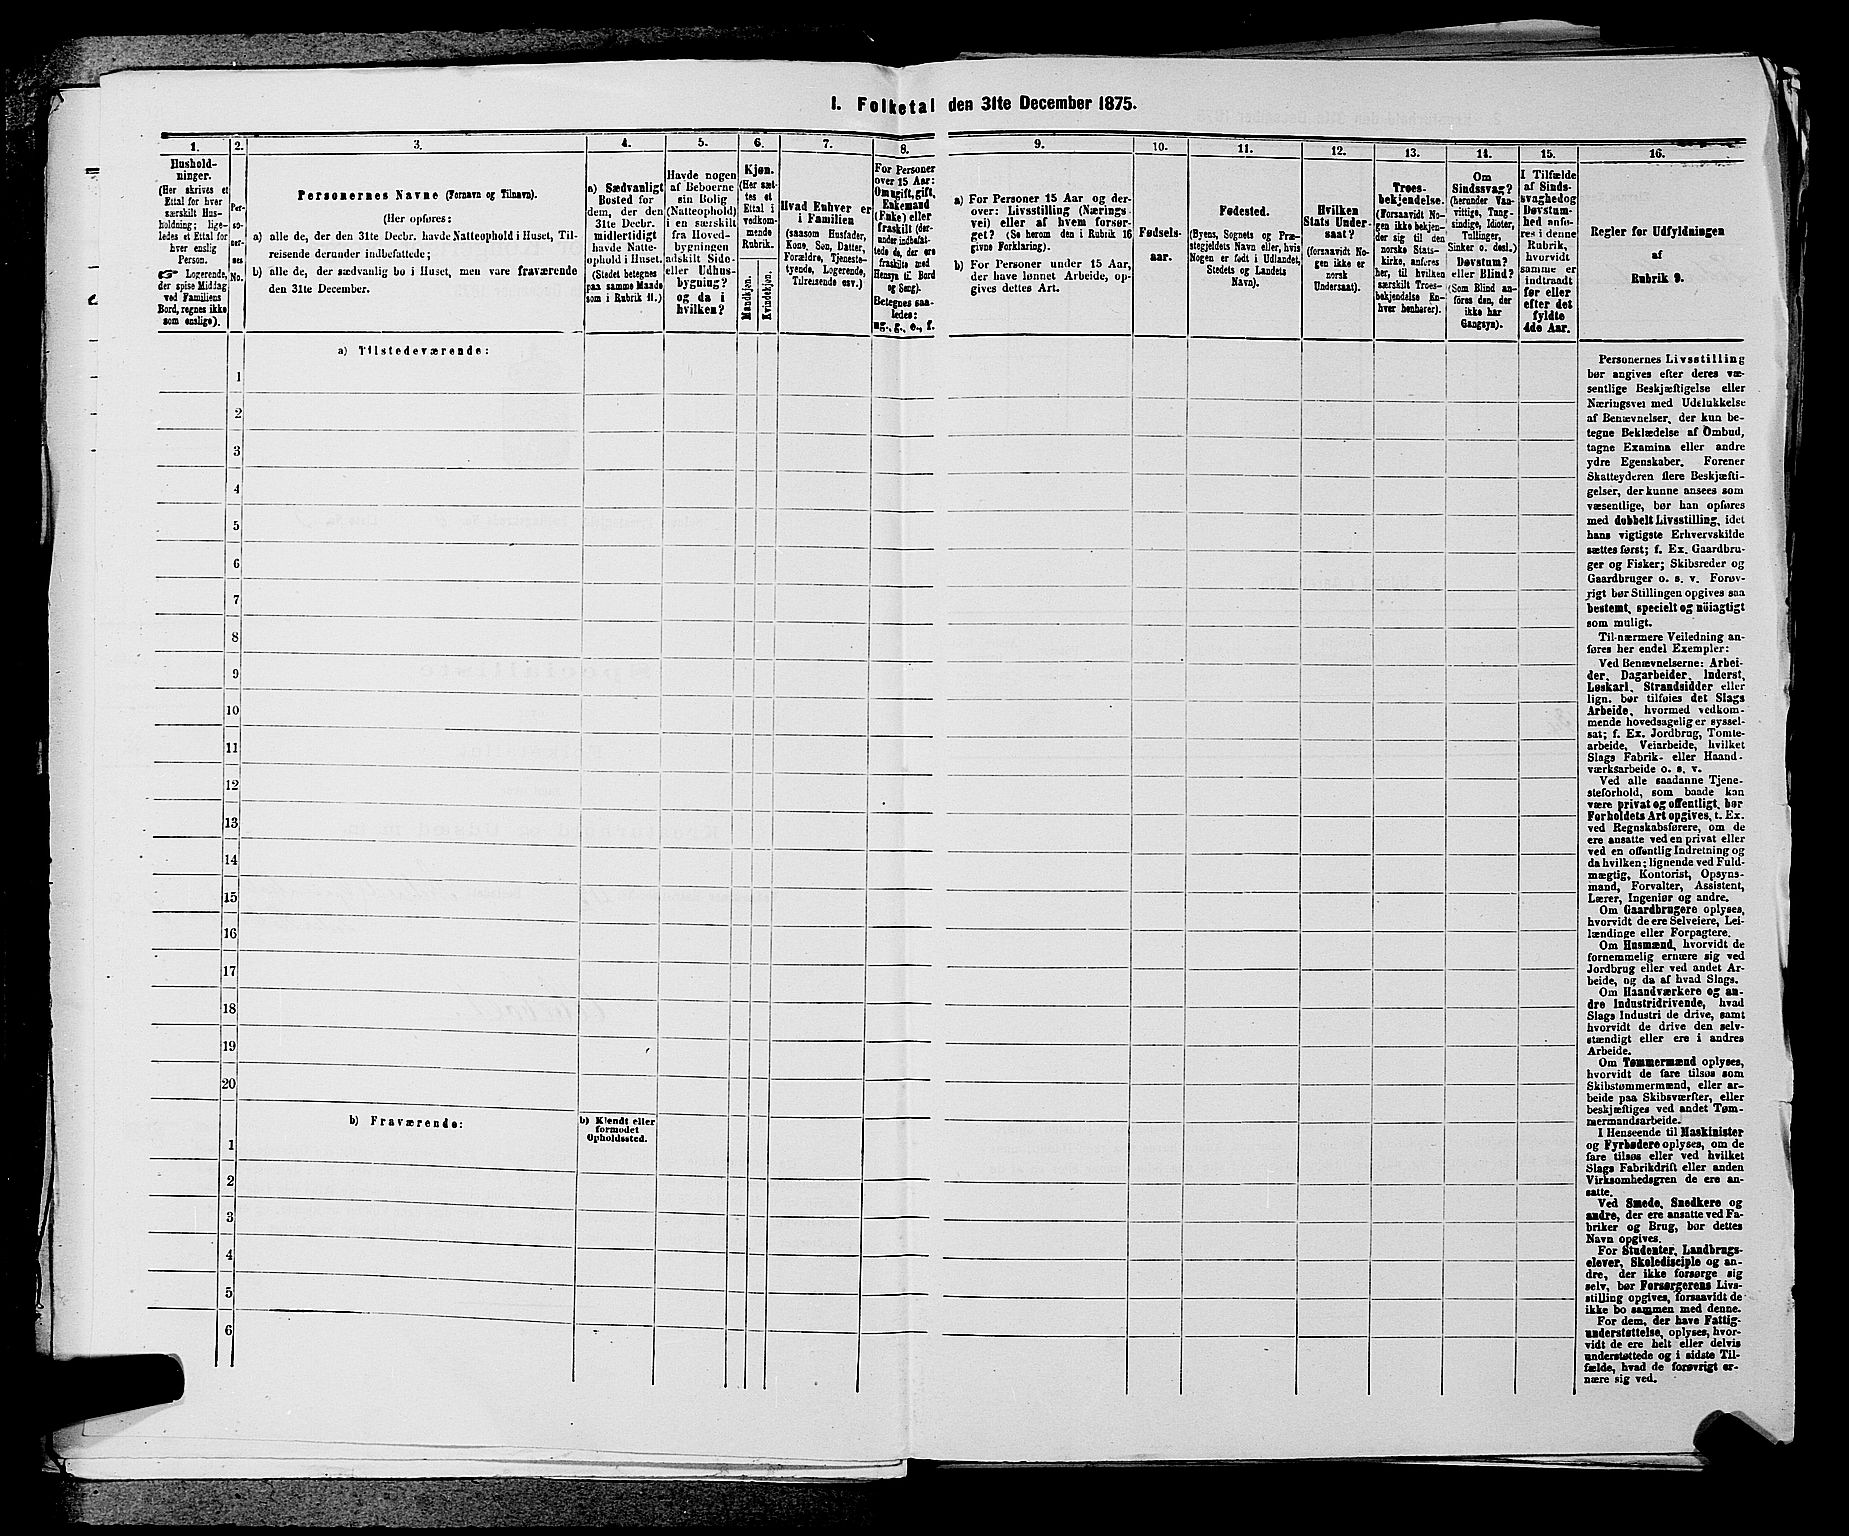 I. Folketal den 31te December 1875.
1.
Hushold-
ninger.
(Her skrives et
Ettal for hver
særskilt Hus-
holdning; lige-
ledes et Ettal for
hver enslig
Person.
☞ Logerende,
der spise Middag
ved Familiens
Bord, regnes ikke
som enslige).
2.
Per-
so-
ner-
nes
No.
3.
Personernes Navne (Fornavn og Tilnavn).
(Her opføres:
a) alle de, der den 31te Decbr. havde Natteophold i Huset, Til-
reisende derunder indbefattede;
b) alle de, der sædvanlig bo i Huset, men vare fraværende
den 31te December.
4.
a) Sædvanligt
Bosted for
dem, der den
31te Decbr.
midlertidigt
havde Natte-
ophold i Huset.
(Stedet betegnes
paa samme Maade
som i Rubrik 11.)
5.
Havde nogen
af Beboerne
sin Bolig
(Natteophold)
i en særskilt
fra Hoved-
bygningen
adskilt Side-
eller Udhus-
bygning?
og da i
hvilken?
6.
Kjøn.
(Her sæt-
tes et
Ettal i
vedkom-
mende
Rubrik.
Mandkjøn.
Kvindekjøn.
7.
Hvad Enhver er
i Familien
(saasom Husfader,
Kone, Søn, Datter,
Forældre, Tjeneste-
tyende, Logerende,
Tilreisende osv.)
8.
For Personer
over 15 Aar:
Om ugift, gift,
Enkemand
(Enke) eller
fraskilt (der-
under indbefat-
tede de, der ere
fraskilte med
Hensyn til Bord
og Seng).
Betegnes saa-
ledes:
ug., g., e., f.
9.
a) For Personer 15 Aar og der-
over: Livsstilling (Nærings-
vei) eller af hvem forsør-
get? (Se herom den i Rubrik 16
givne Forklaring).
b) For Personer under 15 Aar,
der have lønnet Arbeide, op-
gives dettes Art.
10.
Fødsels-
aar.
11.
Fødested.
(Byens, Sognets og Præ-
stegjeldets Navn eller, hvis
Nogen er født i Udlandet,
Stedets og Landets
Navn).
12.
Hvilken
Stats Under-
saat?
(forsaavidt No-
gen ikke er
norsk
Undersaat).
13.
Troes-
bekjendelse.
(Forsaavidt No-
gen ikke bekjen-
der sig til den
norske Stats-
kirke, anføres
her, til hvilken
særskilt Troes-
bekjendelse En-
hver henhører).
14.
Om
Sindssvag?
(herunder Van-
vittige, Tung-
sindige, Idioter,
Tullinger,
Sinker o. desl.)
Døvstum?
eller Blind?
(Som Blind an-
føres den, der
ikke har
Gangsyn).
15.
I Tilfælde
af Sinds-
svaghed og
Døvstum-
hed anfø-
res i denne
Rubrik,
hvorvidt
samme er
indtraadt
før eller
efter det
fyldte
4de Aar.
16.
Regler for Udfyldningen
af
Rubrik 9.
a) Tilstedeværende:
1
2
3
4
5
6
7
8
9
10
11
12
13
14
15
16
17
18
19
20
b) Fraværende:
b) Kjendt eller
formodet
Opholdssted.
1
2
3
4
5
6
Personernes Livsstilling
bør angives efter deres væ-
sentlige Beskjæftigelse eller
Næringsvei med Udelukkelse
af Benævnelser, der kun be-
tegne Beklædelse af Ombud,
tagne Examina eller andre
ydre Egenskaber. Forener
Skatteyderen flere Beskjæfti-
gelser, der kunne ansees som
væsentlige, bør han opføres
med dobbelt Livsstilling, idet
hans vigtigste Erhvervskilde
sættes først; f. Ex. Gaardbru-
ger og Fisker; Skibsreder og
Gaardbruger o. s. v. Forøv-
rigt bør Stillingen opgives saa
bestemt, specielt og nøiagtigt
som muligt.
Til nærmere Veiledning an-
føres her endel Exempler:
Ved Benævnelserne: Arbei-
der, Dagarbeider, Inderst,
Løskarl, Strandsidder eller
lign. bør tilføies det Slags
Arbeide, hvormed vedkom-
mende hovedsagelig er syssel-
sat; f. Ex. Jordbrug, Tomte-
arbeide, Veiarbeide, hvilket
Slags Fabrik- eller Haand-
værksarbeide o. s. v.
Ved alle saadanne Tjene-
steforhold, som baade kan
være privat og offentligt, bør
Forholdets Art opgives, t. Ex.
ved Regnskabsførere, om de
ere ansatte ved en privat eller
ved en offentlig Indretning og
da hvilken; lignende ved Fuld-
mægtig, Kontorist, Opsyns-
mand, Forvalter, Assistent,
Lærer, Ingeniør og andre.
Om Gaardbrugere oplyses,
hvorvidt de ere Selveiere, Lei-
lændinge eller Forpagtere.
Om Husmænd, hvorvidt de
fornemmelig ernære sig ved
Jordbrug eller ved andet Ar-
beide, og da af hvad Slags.
Om Haandværkere og an-
dre Industridrivende, hvad
Slags Industri de drive, samt
hvorvidt de drive den selv-
stændigt eller ere i andres
Arbeide.
Om Tømmermænd oplyses,
hvorvidt de fare tilsøs som
Skibstømmermænd, eller ar-
beide paa Skibsværfter, eller
beskjæftiges ved andet Tøm-
mermandsarbeide.
I Henseende til Maskinister
og Fyrbødere oplyses, om de
fare tilsøs eller ved hvilket
Slags Fabrikdrift eller anden
Virksomhedsgren de ere an-
satte.
Ved Smede, Snedkere og
andre, der ere ansatte ved Fa-
briker og Brug, bør dettes
Navn opgives.
For Studenter, Landbrugs-
elever, Skoledisciple og an-
dre, der ikke forsørge sig
selv, bør Forsørgerens Livs-
stilling opgives, forsaavidt de
ikke bo sammen med denne.
For dem, der have Fattig-
understøttelse, oplyses, hvor-
vidt de ere helt eller delvis
understøttede og i sidste Til-
fælde, hvad de forøvrigt er-
nære sig ved.